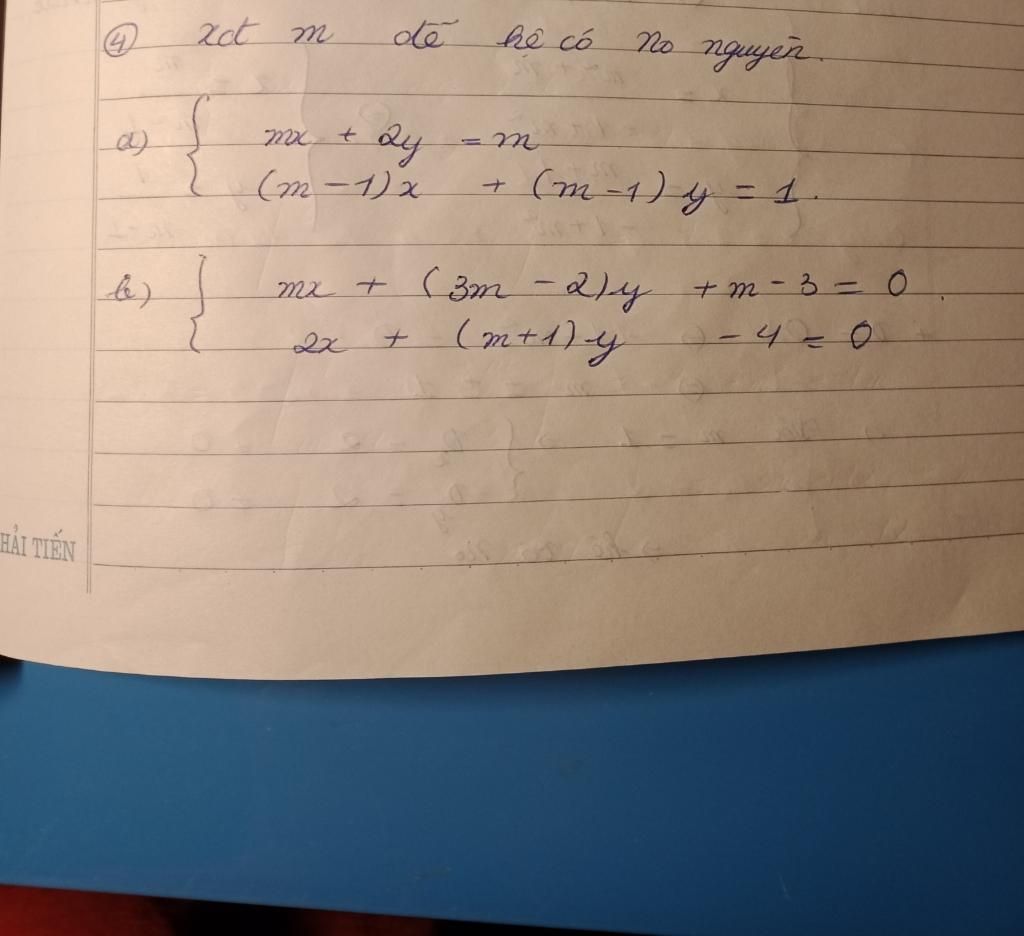 ④ xđ m để hệ có no nguyên.
a) { mx + 2y = m
(m - 1)x + (m - 1) y = 1.
b) { mx + (3m - 2)y + m - 3 = 0.
2x + (m + 1)y - 4 = 0
HẢI TIẾN